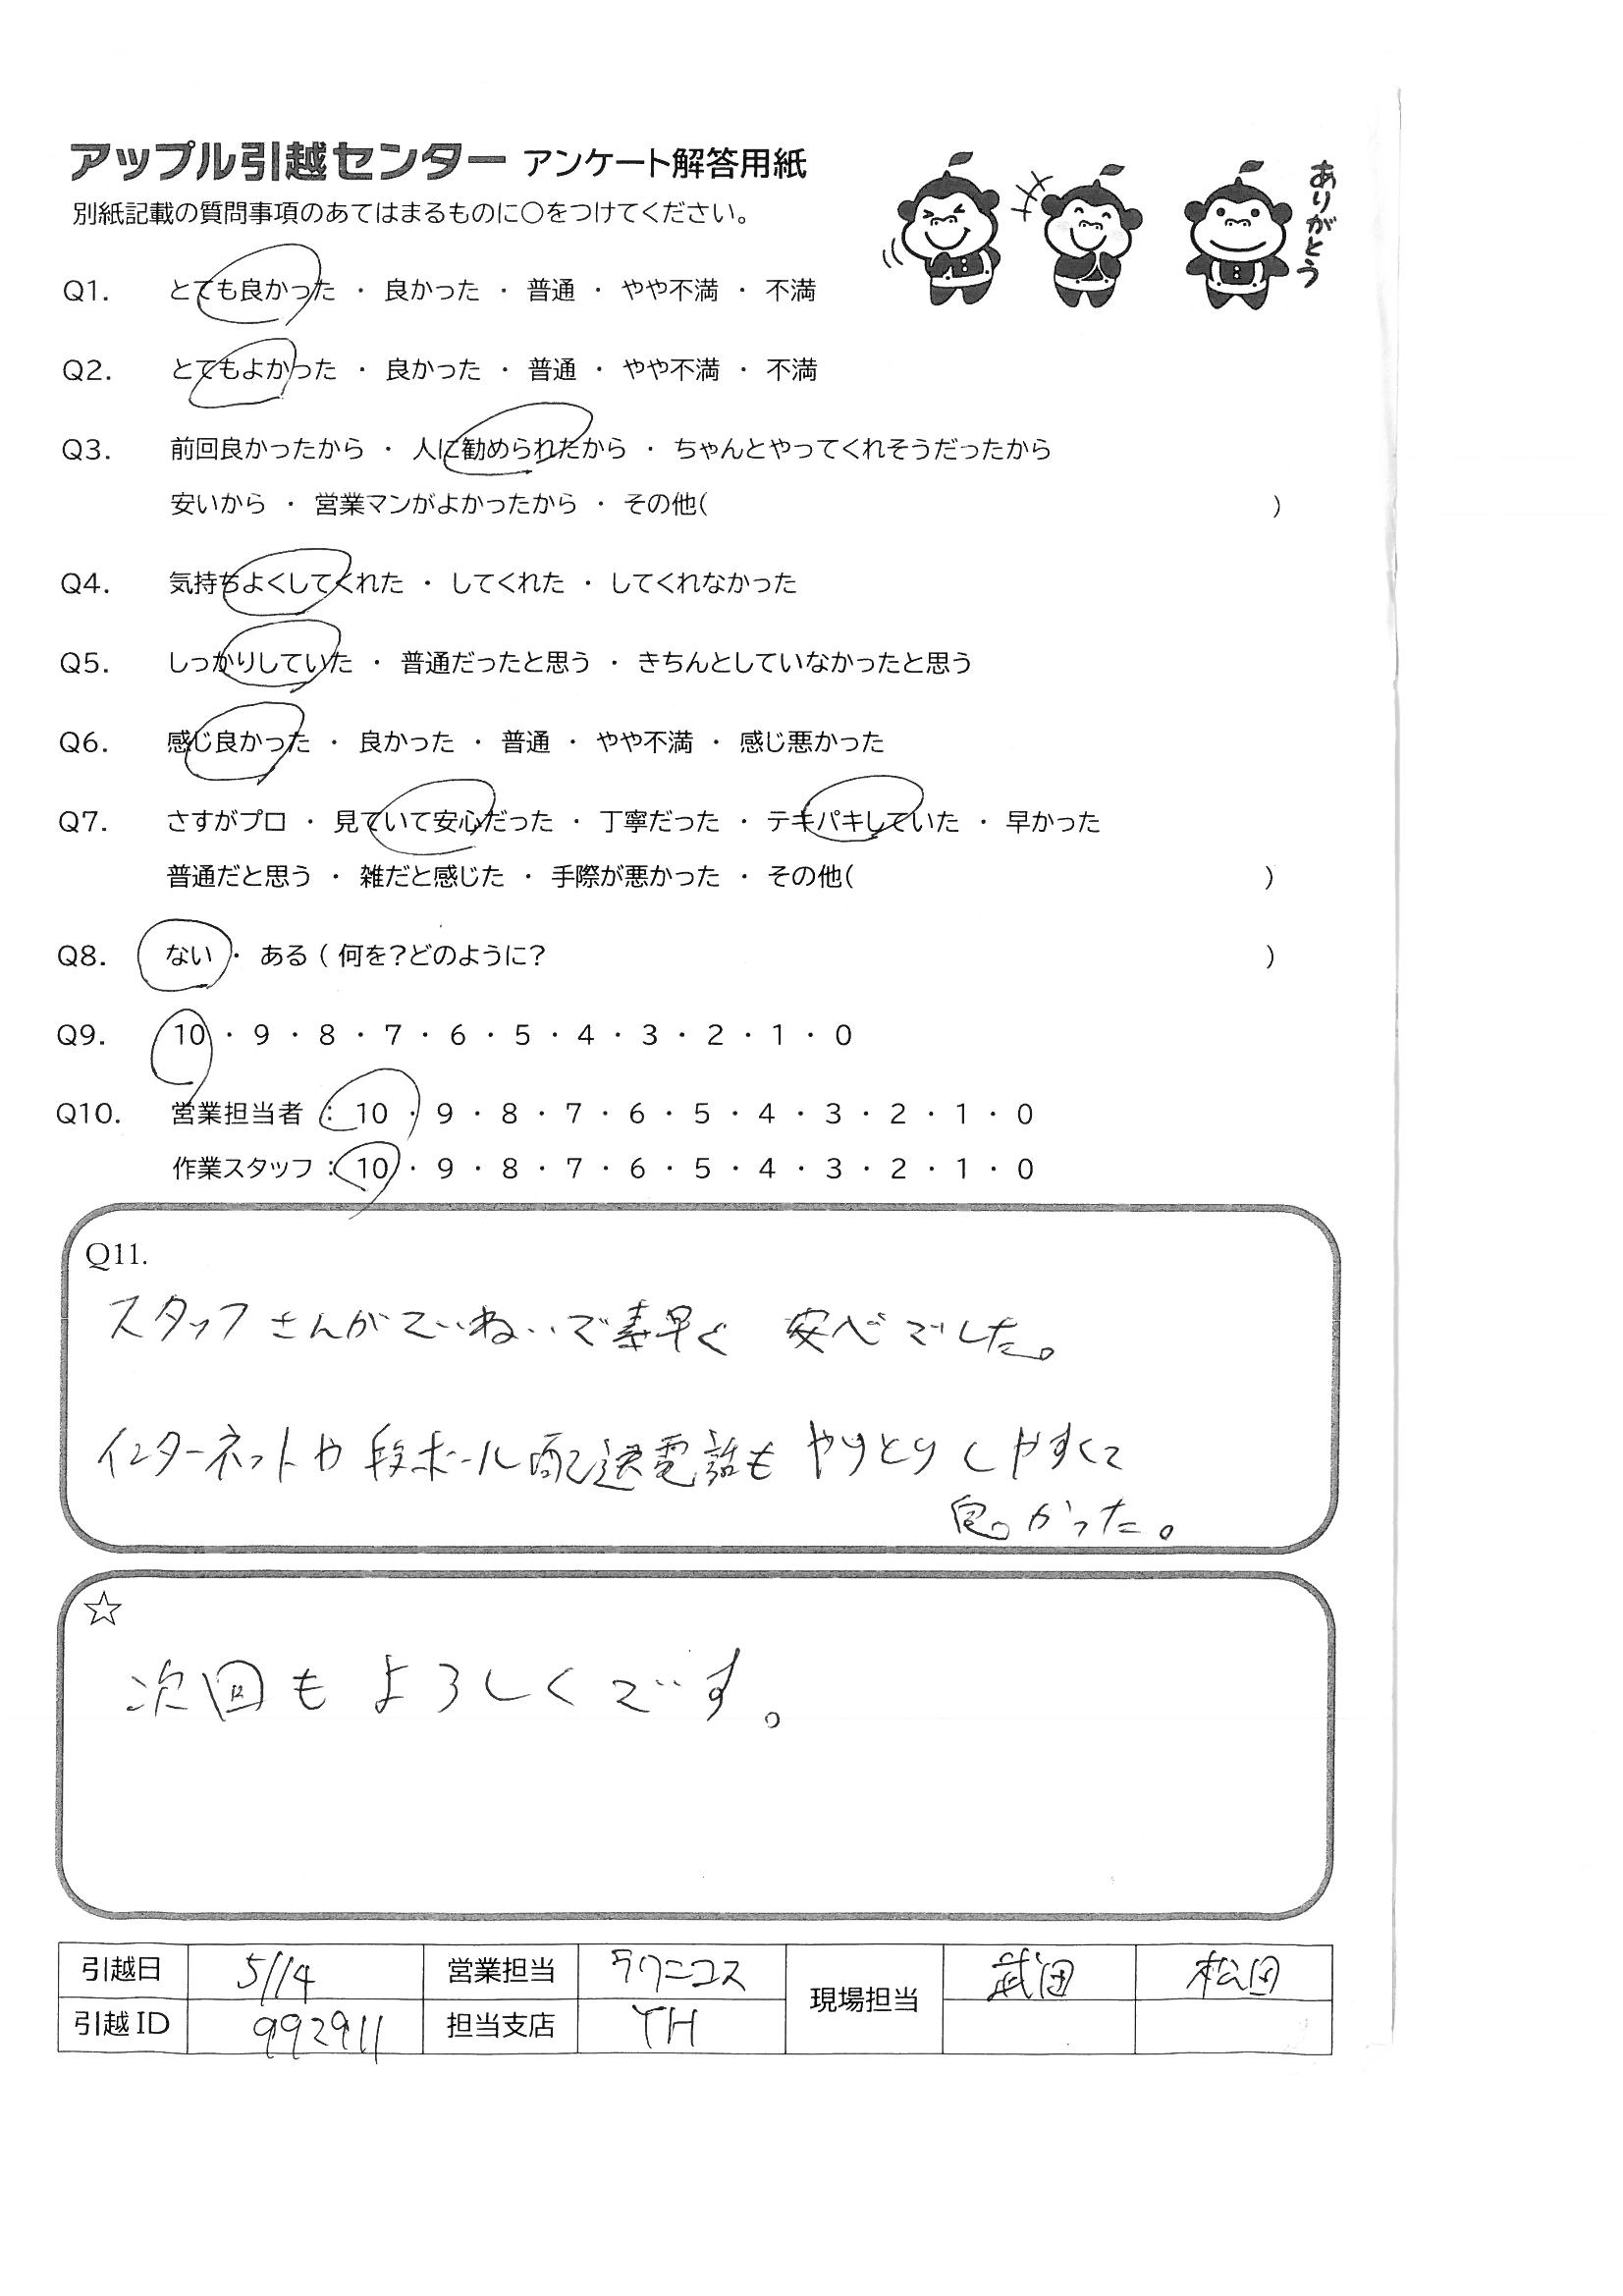 アップル引越センター アンケート解答用紙
ありがとう
別紙記載の質問事項のあてはまるものに○をつけてください。
Q1. とても良かった ・ 良かった ・ 普通 ・ やや不満 ・ 不満
Q2. とてもよかった ・ 良かった ・ 普通 ・ やや不満 ・ 不満
Q3. 前回良かったから ・ 人に勧められたから ・ ちゃんとやってくれそうだったから
安いから ・ 営業マンがよかったから ・ その他( )
Q4. 気持ちよくしてくれた ・ してくれた ・ してくれなかった
Q5. しっかりしていた ・ 普通だったと思う ・ きちんとしていなかったと思う
Q6. 感じ良かった ・ 良かった ・ 普通 ・ やや不満 ・ 感じ悪かった
Q7. さすがプロ ・ 見ていて安心だった ・ 丁寧だった ・ テキパキしていた ・ 早かった
普通だと思う ・ 雑だと感じた ・ 手際が悪かった ・ その他( )
Q8. ない ・ ある ( 何を?どのように? )
Q9. 10 ・ 9 ・ 8 ・ 7 ・ 6 ・ 5 ・ 4 ・ 3 ・ 2 ・ 1 ・ 0
Q10. 営業担当者 : 10 ・ 9 ・ 8 ・ 7 ・ 6 ・ 5 ・ 4 ・ 3 ・ 2 ・ 1 ・ 0
作業スタッフ : 10 ・ 9 ・ 8 ・ 7 ・ 6 ・ 5 ・ 4 ・ 3 ・ 2 ・ 1 ・ 0
Q11.
スタッフさんがていねいで素早く 安心でした。
インターネットや段ボール配送電話もやりとりしやすくて
良かった。
☆
次回もよろしくです。
引越日 5/14 営業担当 ラクニコス 現場担当 武田 松田
引越ID 992911 担当支店 TH